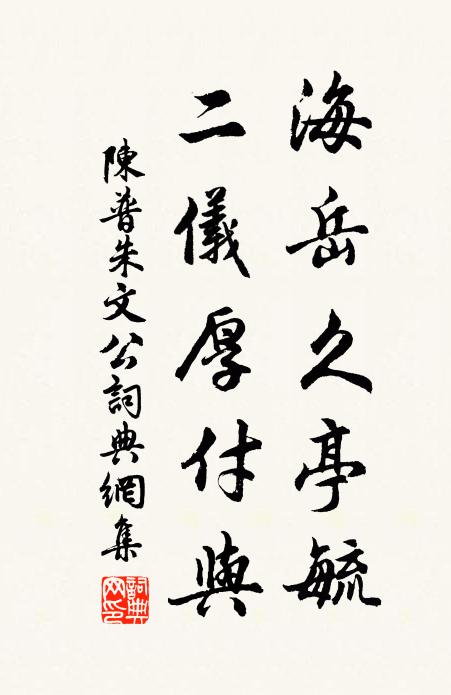 海岳久亭毓
二儀厚付與
陳普朱文公詞典網集
詞典網印